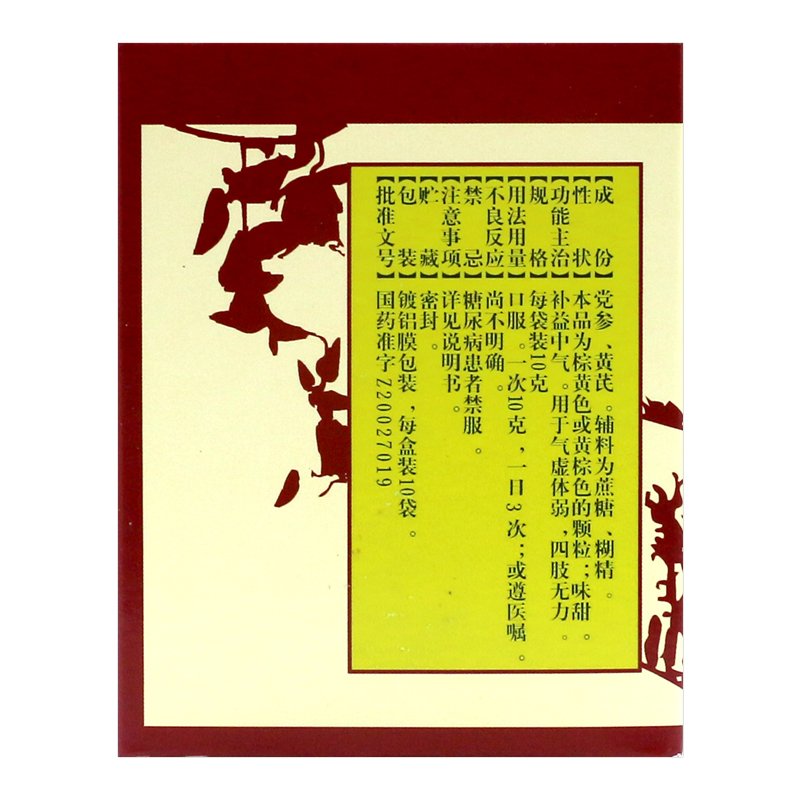 【成份】党参、黄芪。辅料为蔗糖、糊精。
【性状】本品为棕黄色或黄棕色的颗粒；味甜。
【功能主治】补益中气。用于气虚体弱，四肢无力。
【规格】每袋装10克
【用法用量】口服。一次10克，一日3次；或遵医嘱。
【不良反应】尚不明确。
【禁忌】糖尿病患者禁服。
【注意事项】详见说明书。
【贮藏】密封。
【包装】镀铝膜包装，每盒装10袋。
【批准文号】国药准字Z20027019